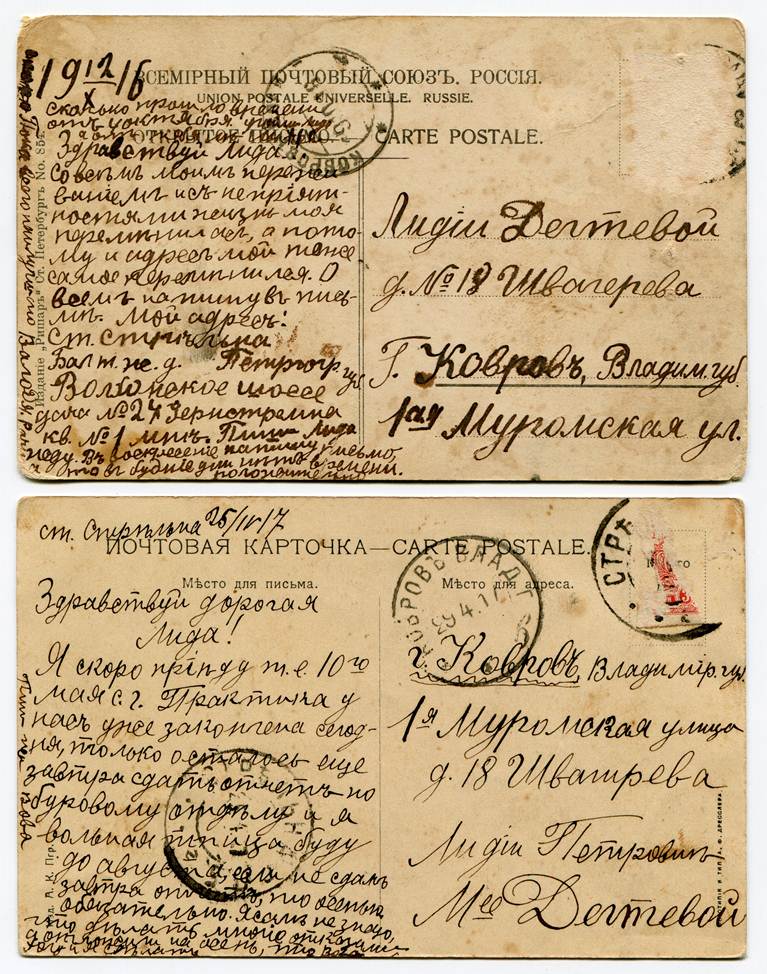 19 12/X 16
ВСЕМІРНЫЙ ПОЧТОВЫЙ СОЮЗЪ. РОССІЯ.
UNION POSTALE UNIVERSELLE. RUSSIE.
ОТКРЫТОЕ ПИСЬМО. CARTE POSTALE.
КОВРОВ
сколько прошло времени
Здравствуй Лида!
Совсѣмъ моимъ пережи
ваніемъ и съ непріят-
ностями жизнь моя
перемѣнилась, а пото-
му и адресъ мой тоже
самое перемѣнился. О
всемъ напишу въ пись-
мѣ. Мой адресъ:
Ст. Стрѣльна
Балт. ж. д. Петрогр. губ
Волхонское шоссе
дача № 27
кв. № 1 мнѣ. Пиши Лида
жду. Въ воскресенье напишу письмо,
а то въ будніе дни нѣтъ времени.
положительно
Изданіе „Ришаръ“ Ст. Петербургъ No. 854.
Лидіи Дегтевой
д. № 18 Швагерева
Г. Ковровъ, Владим. губ.
1ая Муромская ул.
ст. Стрѣльна 25/IV 17
ПОЧТОВАЯ КАРТОЧКА—CARTE POSTALE.
Мѣсто для письма. Мѣсто для адреса.
КОВРОВЪ ВЛАД. Г.
29.4.17
СТРѢ
Здравствуй дорогая
Лида!
Я скоро пріѣду т. е. 10го
мая с. г. Практика у
насъ уже закончена сегод-
ня, только осталось еще
завтра сдать отчетъ по
буровому отдѣлу и я
вольная птица буду
до августа, если не сдамъ
завтра отчетъ, то осенью
обязательно. Я самъ не знаю,
что дѣлать
г. Ковровъ, Владимір. губ.
1я Муромская улица
д. 18 Швагрева
Лидіи Петровнѣ
Мсе Дегтевой